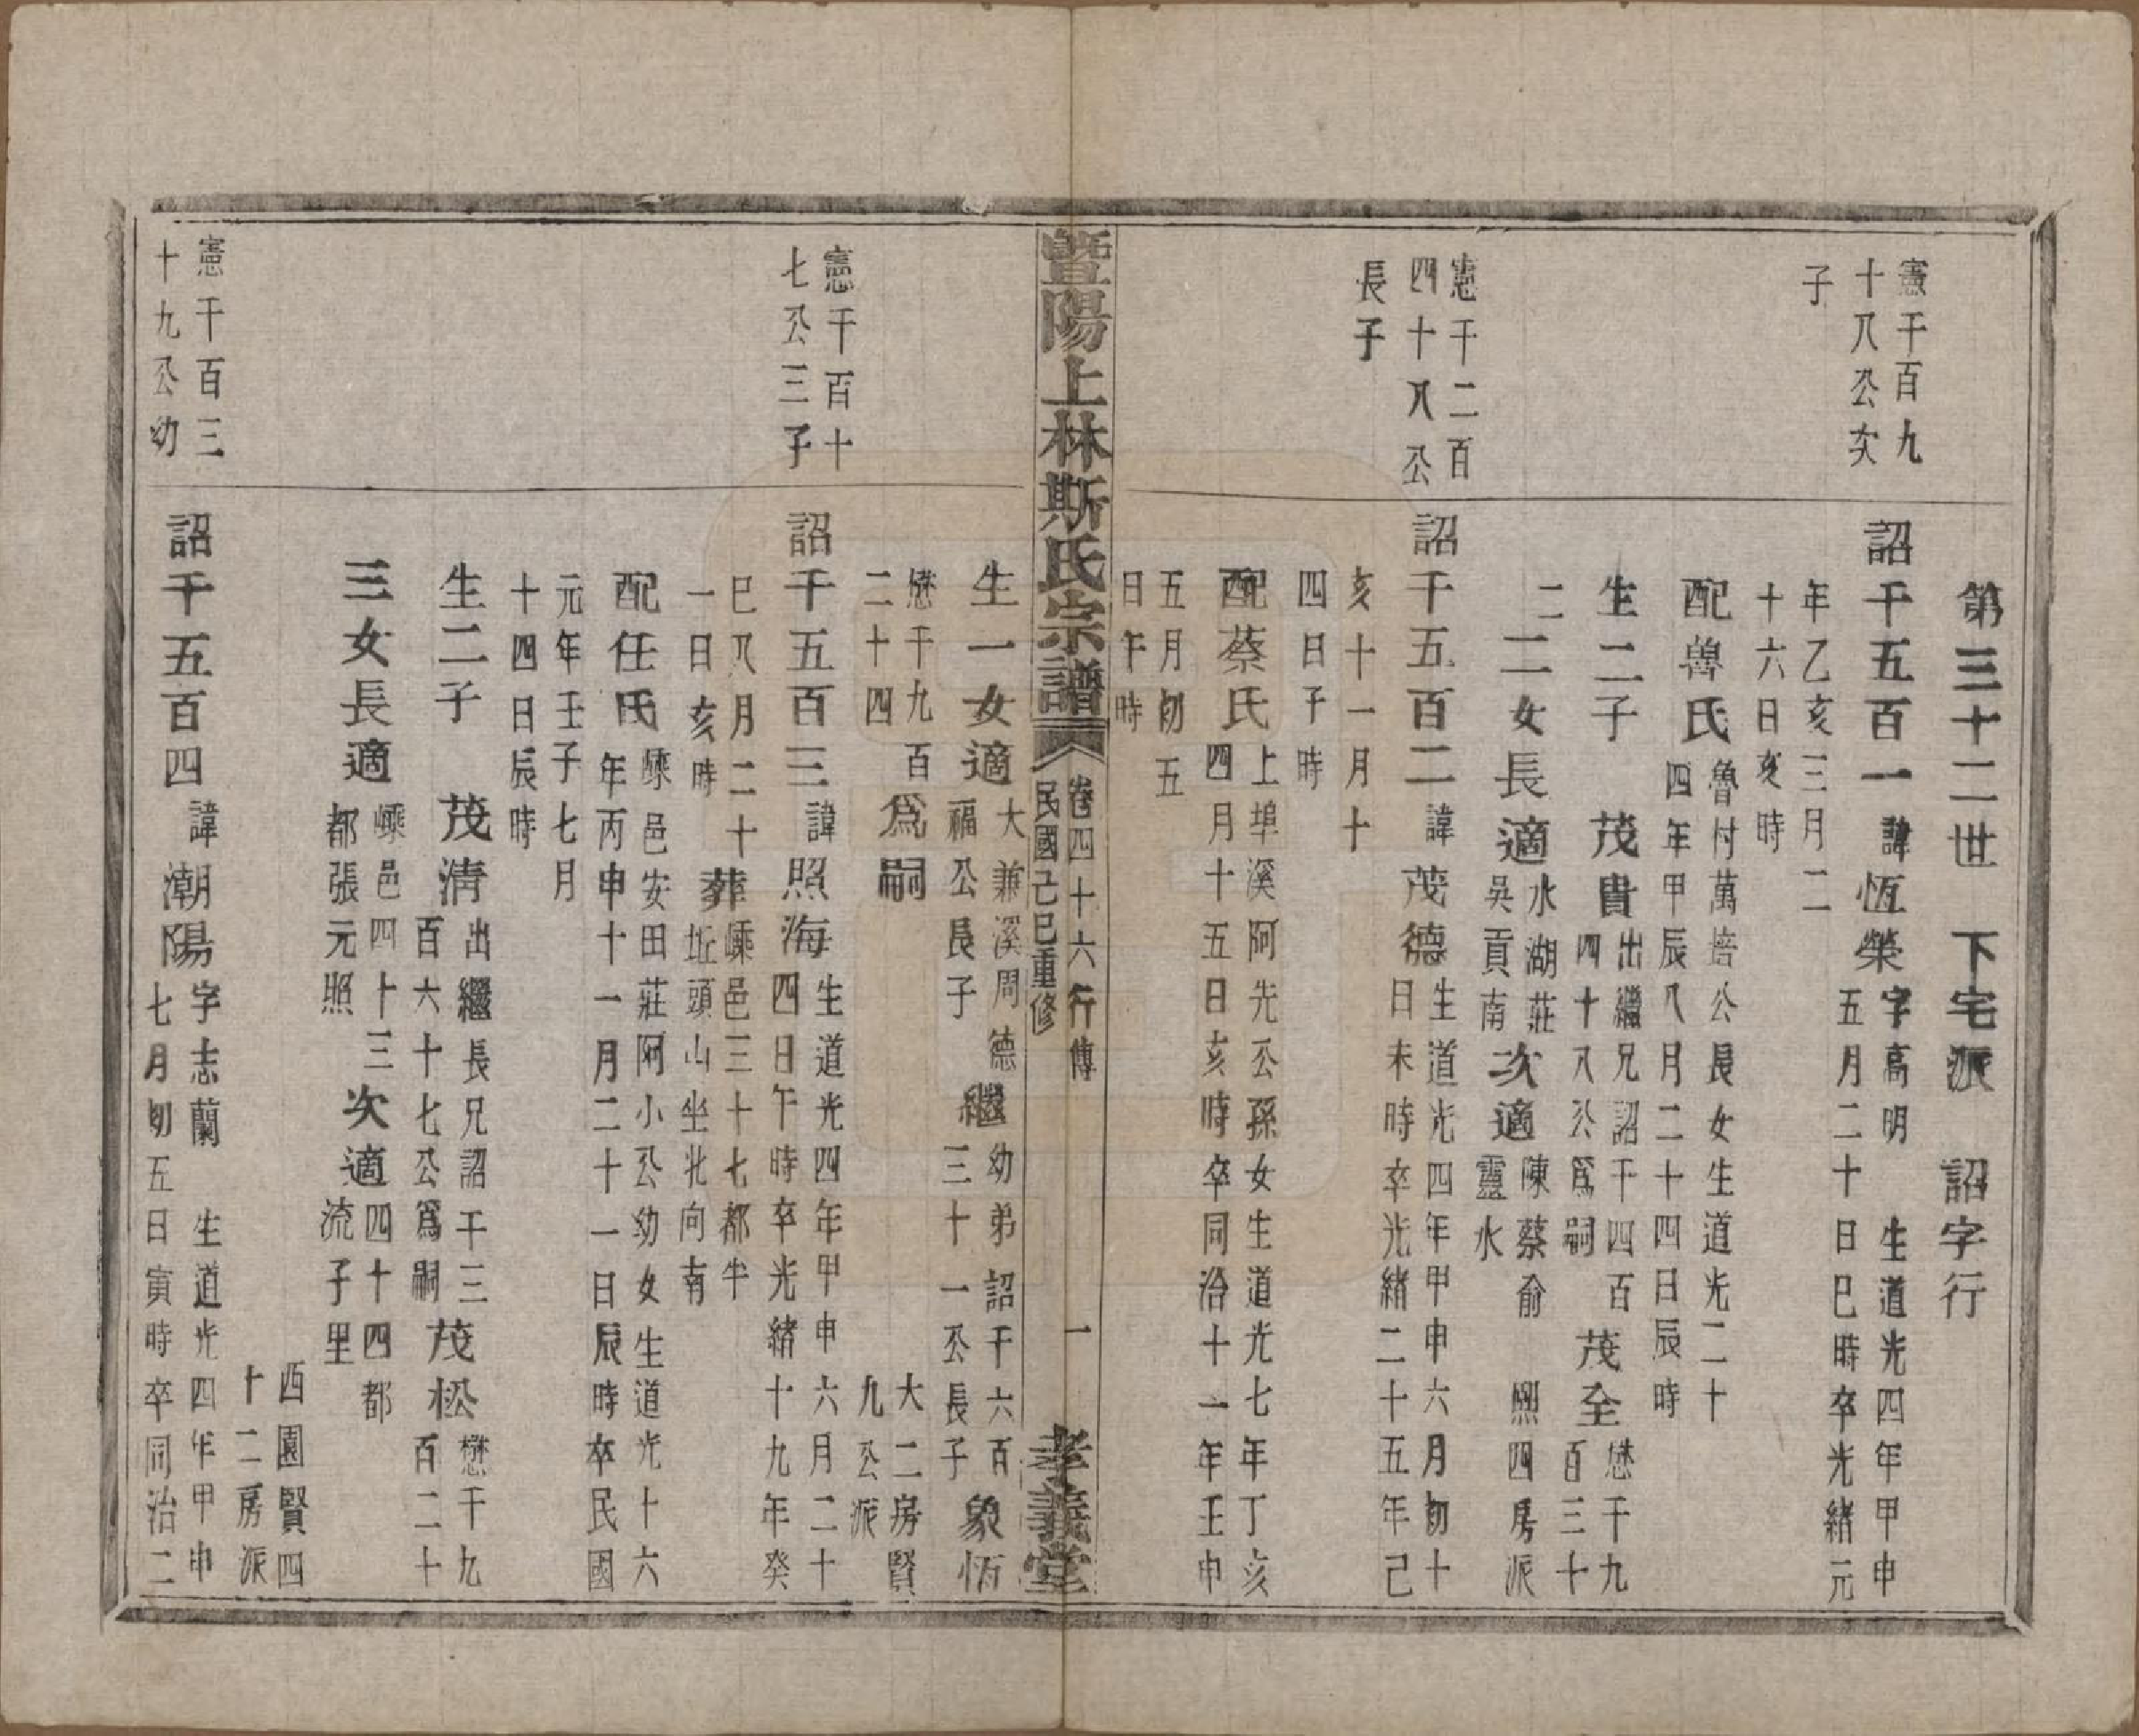 第三十二世　下宅派　詔字行
憲千百九
十八公次
子
詔千五百一
諱恆榮
字高明　生道光四年甲申
五月二十日巳時卒光緒元
年乙亥三月二
十六日亥時
配魯氏
魯村萬培公長女生道光二十
四年甲辰八月二十四日辰時
生二子　茂貴
出繼兄詔千四百
四十八公爲嗣
茂全
懋千九
百三十
二
二女長適
水湖莊
吳貢南
次適
陳蔡俞
靈水
熙四房派
憲千二百
四十八公
長子
詔千五百二
諱茂德
生道光四年甲申六月初十
日未時卒光緒二十五年己
亥十一月十
四日子時
配蔡氏
上埠溪阿先公孫女生道光七年丁亥
四月十五日亥時卒同治十一年壬申
五月初五
日午時
暨陽上林斯氏宗譜
卷四十六行傳
民國己巳重修
一
孝義堂
生一女適
大兼溪周德
福公長子
繼
幼弟詔千六百
三十一公長子
象恆
懋千九百
二十四
爲嗣
大二房賢
九公派
憲千百十
七公三子
詔千五百三
諱照海
生道光四年甲申六月二十
四日午時卒光緒十九年癸
巳八月二十
一日亥時
葬
嵊邑三十七都半
坵頭山坐北向南
配任氏
嵊邑安田莊阿小公幼女生道光十六
年丙申十一月二十一日辰時卒民國
元年壬子七月
十四日辰時
生二子　茂清
出繼長兄詔千三
百六十七公爲嗣
茂松
懋千九
百二十
三女長適
嵊邑四十三
都張元照
次適
四十四都
流子里
西園賢四
十二房派
憲千百三
十九公幼
詔千五百四
諱潮陽
字志蘭　生道光四年甲申
七月初五日寅時卒同治二